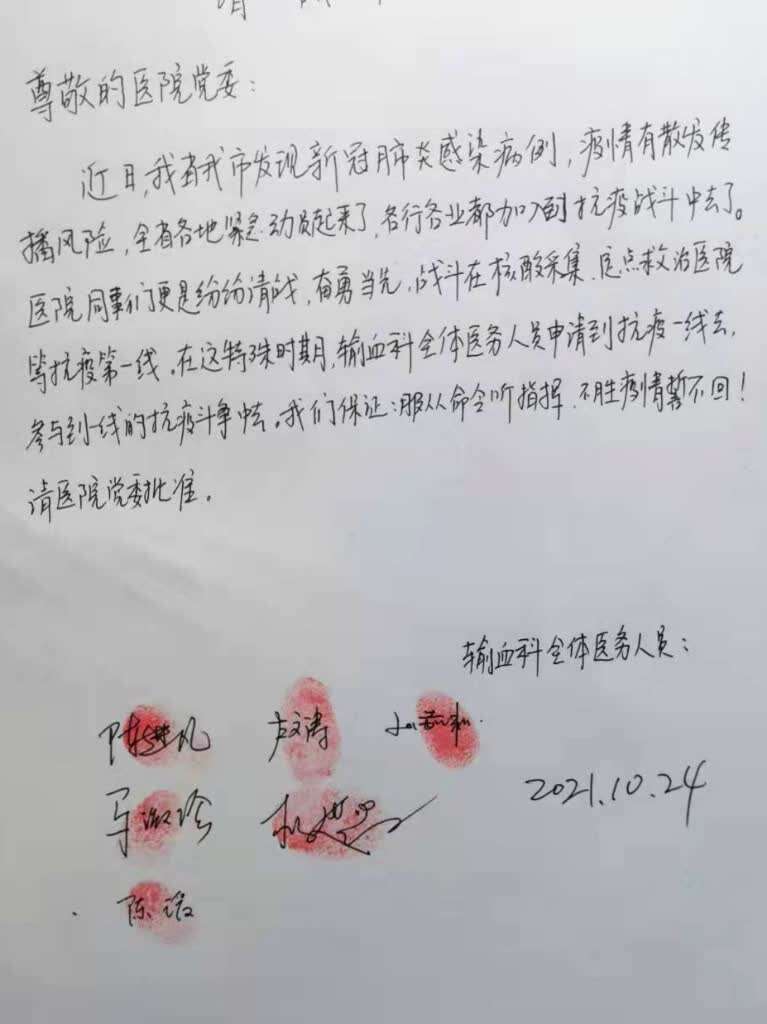 尊敬的医院党委：
近日，我省我市发现新冠肺炎感染病例，疫情有散发传
播风险，全省各地紧急动员起来了，各行各业都加入到抗疫战斗中去了。
医院同事们更是纷纷请战，奋勇当先，战斗在核酸采集、定点救治医院
等抗疫第一线。在这特殊时期，输血科全体医务人员申请到抗疫一线去，
参与到一线的抗疫斗争中去。我们保证：服从命令听指挥，不胜疫情誓不回！
请医院党委批准。
输血科全体医务人员：
卢文涛
马淑珍
2021.10.24
陈瑕